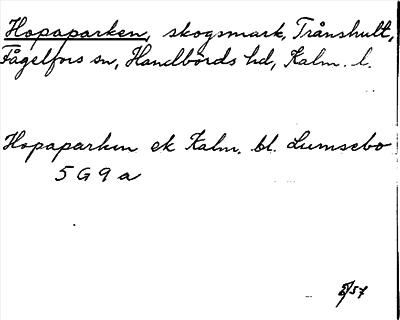 Hopaparken, skogsmark, Trånshult,
Fågelfors sn, Handbörds hd, Kalm. l.
Hopaparken ek Kalm. bl. Lumsebo
5 G 9 a